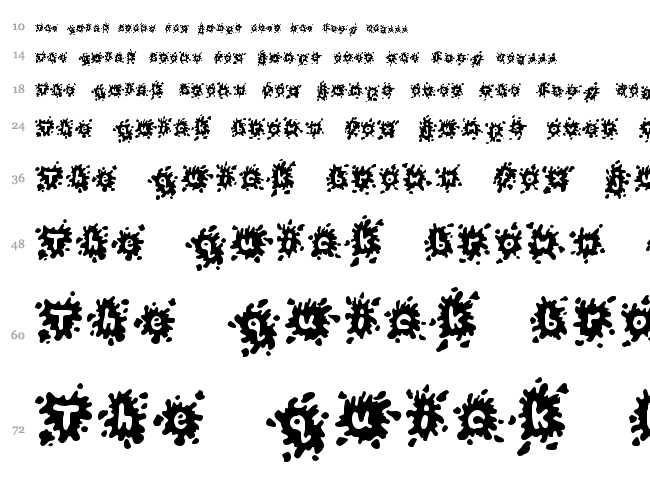 10 The quick brown fox jumps over the lazy
14 The quick brown fox jumps over the lazy
18 The quick brown fox jumps over the lazy
24 The quick brown fox jumps over
36 The quick brown fox
48 The quick brown
60 The quick bro
72 The quick